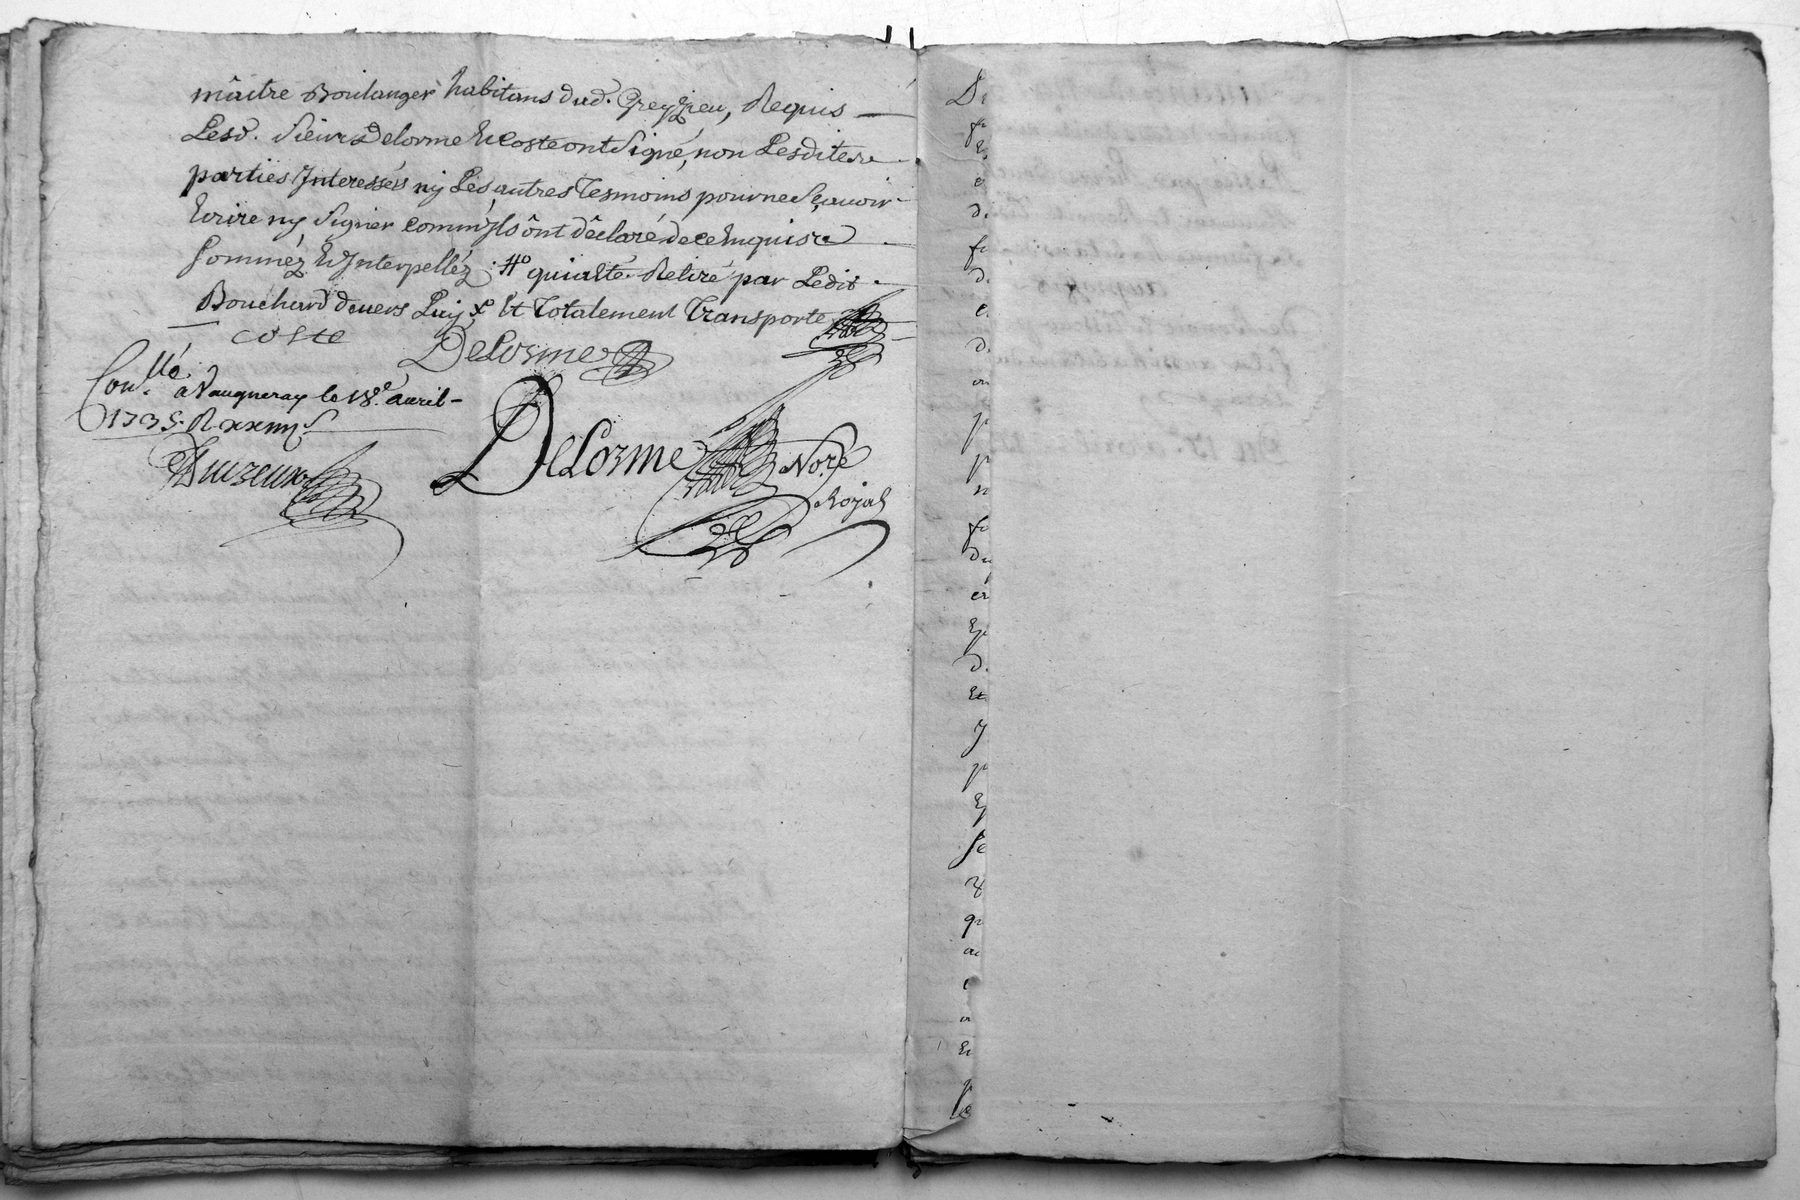 mâitre Boulanger habitans dud. Greyzieu, Requis
Lesd. Sieurs Delorme et Coste ont Signé, non Lesdites
parties Interessés ny Les autres Tesmoins pour ne Sçauoir
Ecrire ny Signer comm'jls ônt déclaré de ce Enquis
Sommez et Interpelléz. #o qui a Eté Retiré par Ledit
Bouchard deuers Luy x Et Totalement Transporte
coste
DeLorme
Con.llé
a Vaugneray le 18e. auril
1735. R
DeLorme No.re
Royal
De
d.
d.
e
d.
p
p
n
du
er
d.
Et
J
p
Se
&
a